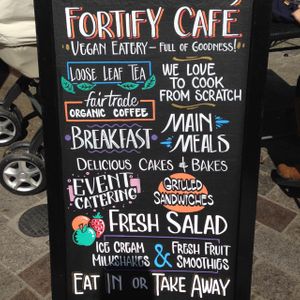 FORTIFY CAFÉ
VEGAN EATERY – FULL OF GOODNESS!
LOOSE LEAF TEA
WE LOVE
TO COOK
FROM SCRATCH
fairTrade
ORGANIC COFFEE
BREAKFAST
MAIN
MEALS
DELICIOUS CAKES & BAKES
EVENT
CATERING
GRILLED
SANDWICHES
FRESH SALAD
ICE CREAM
MILKSHAKES
& FRESH FRUIT
SMOOTHIES
EAT IN OR TAKE AWAY